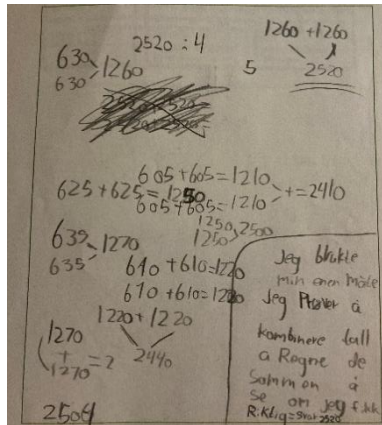 2520 : 4
1260 + 1260
2520
5
630
630
1260
605 + 605 = 1210
605 + 605 = 1210
+ = 2410
625 + 625 = 1250
1250
1250
2500
635
635
1270
610 + 610 = 1220
610 + 610 = 1220
1220 + 1220
2440
1270
+
1270
= 2
2504
Jeg brukte
min egen Måte
Jeg Prøver å
kombinere tall
å Regne de
Sammen å
se om jeg fikk
Riktig = svar 2520